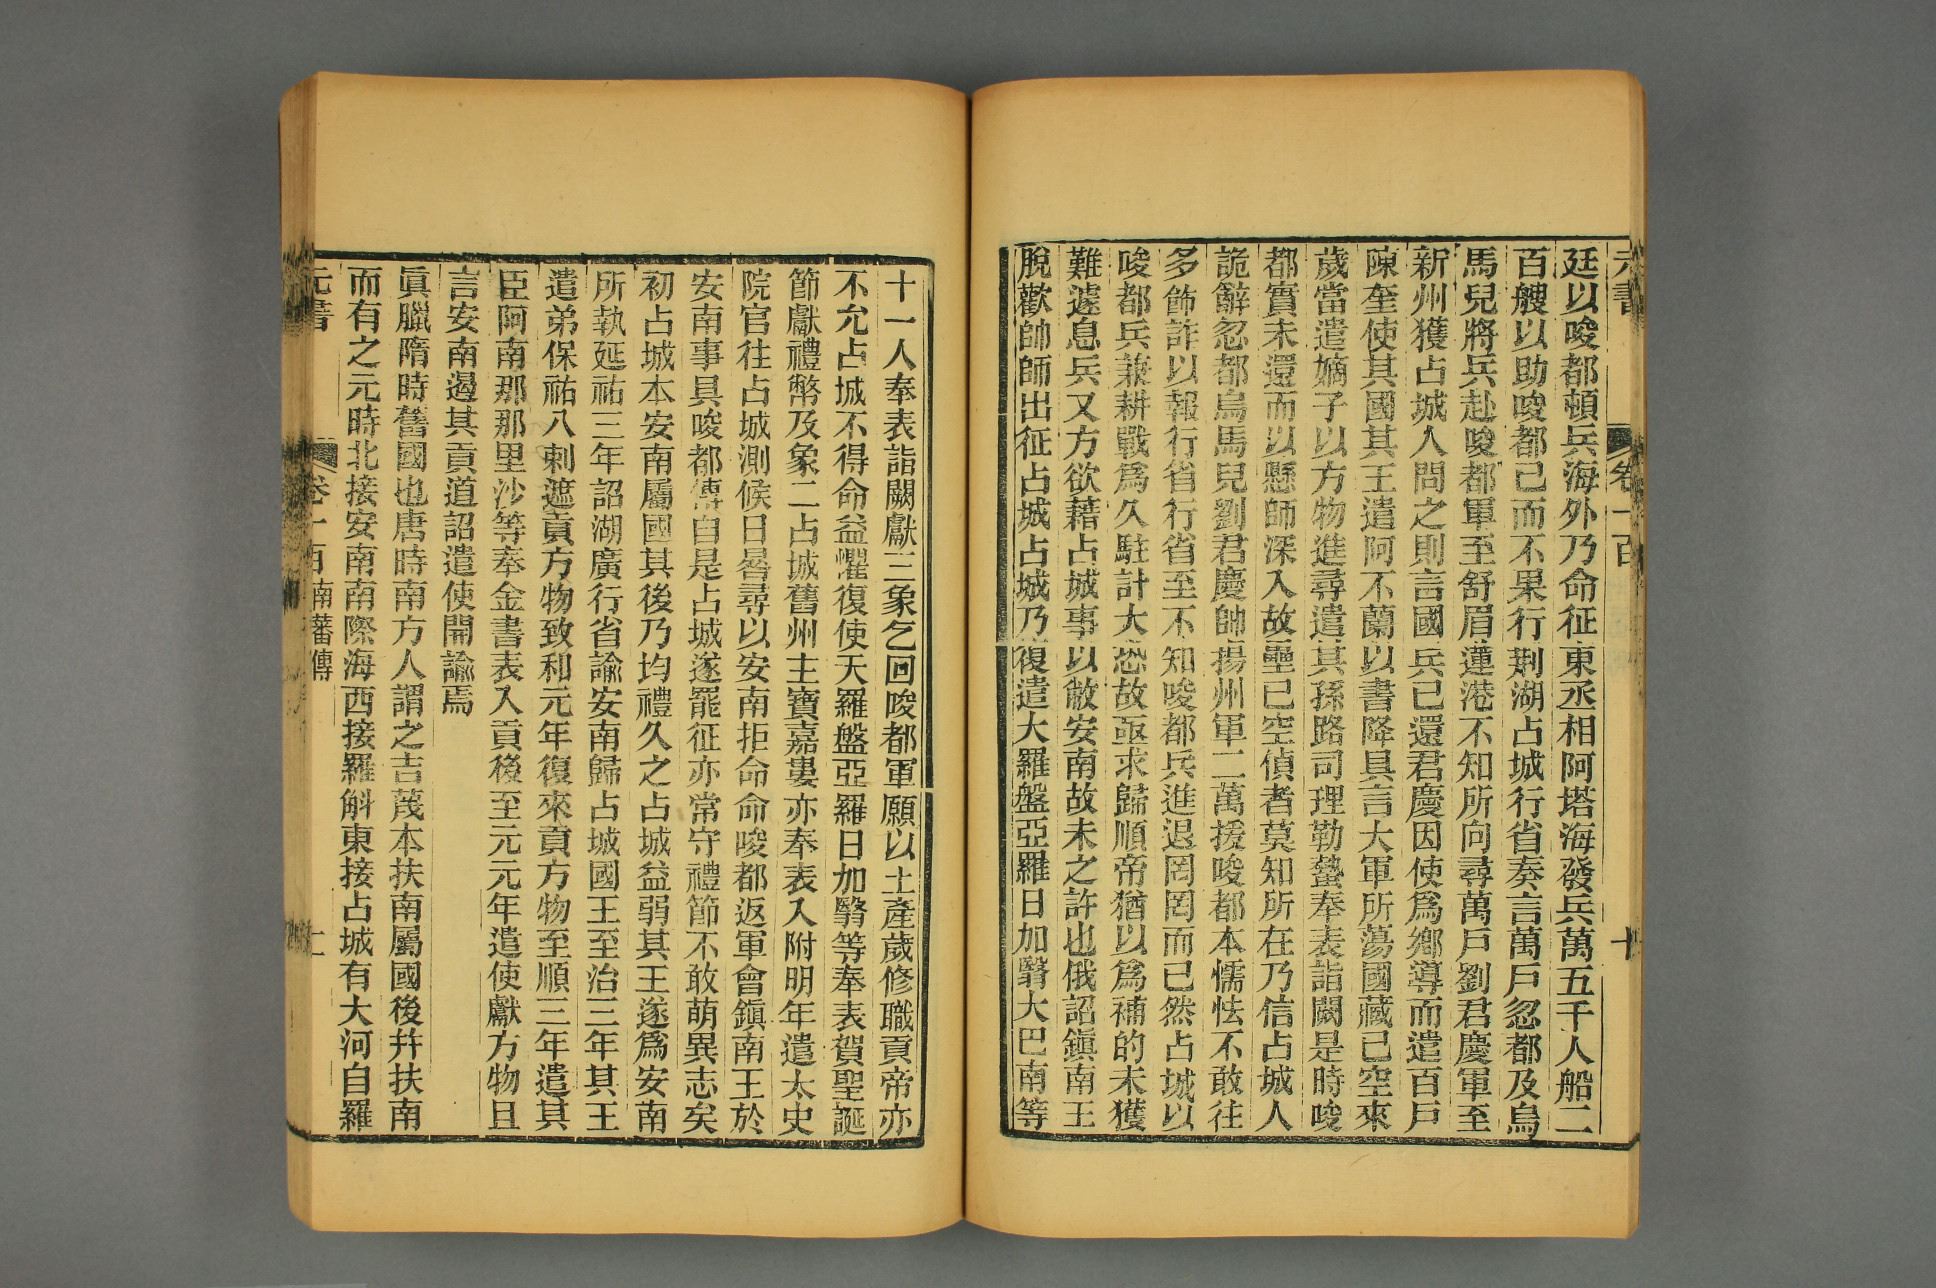 元書 卷一百 十
廷以唆都頓兵海外乃命征東丞相阿塔海發兵萬五千人船二
百艘以助唆都已而不果行荆湖占城行省奏言萬戶忽都及烏
馬兒將兵赴唆都軍至舒眉蓮港不知所向尋萬戶劉君慶軍至
新州獲占城人問之則言國兵已還君慶因使爲鄉導而遣百戶
陳奎使其國其王遣阿不蘭以書降具言大軍所蕩國藏已空來
歲當遣嫡子以方物進尋遣其孫路司理勒蟄奉表詣闕是時唆
都實未還而以懸師深入故壘已空偵者莫知所在乃信占城人
詭辭忽都烏馬兒劉君慶帥揚州軍二萬援唆都本懦怯不敢往
多飾詐以報行省行省至不知唆都兵進退罔罔而已然占城以
唆都兵兼耕戰爲久駐計大恐故亟求歸順帝猶以爲補的未獲
難遽息兵又方欲藉占城事以敝安南故未之許也俄詔鎭南王
脫歡帥師出征占城占城乃復遣大羅盤亞羅日加翳大巴南等
十一人奉表詣闕獻三象乞回唆都軍願以土產歲修職貢帝亦
不允占城不得命益懼復使天羅盤亞羅日加翳等奉表賀聖誕
節獻禮幣及象二占城舊州主寶嘉婁亦奉表入附明年遣太史
院官往占城測候日晷尋以安南拒命命唆都返軍會鎭南王於
安南事具唆都傳自是占城遂罷征亦常守禮節不敢萌異志矣
初占城本安南屬國其後乃均禮久之占城益弱其王遂爲安南
所執延祐三年詔湖廣行省諭安南歸占城國王至治三年其王
遣弟保祐八剌遮貢方物致和元年復來貢方物至順三年遣其
臣阿南那那里沙等奉金書表入貢後至元元年遣使獻方物且
言安南遏其貢道詔遣使開諭焉
眞臘隋時舊國也唐時南方人謂之吉蔑本扶南屬國後幷扶南
而有之元時北接安南南際海西接羅斛東接占城有大河自羅
元書 卷一百 南蕃傳 十一